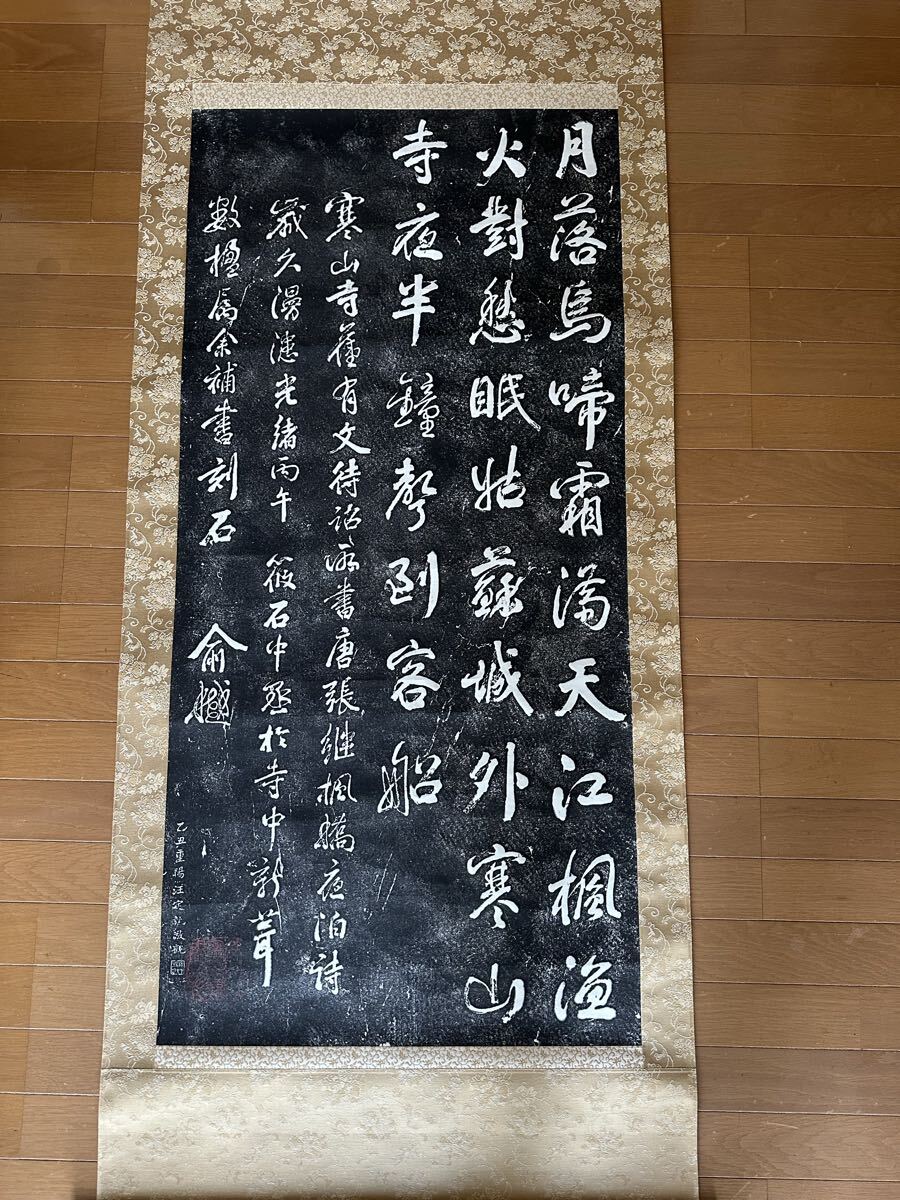 月落烏啼霜滿天江楓漁
火對愁眠姑蘇城外寒山
寺夜半鐘聲到客船
寒山寺舊有文待詔所書唐張繼楓橋夜泊詩
歲久漫漶光緒丙午 筱石中丞於寺中新葺
數楹屬余補書刻石 俞樾
乙丑重陽汪定